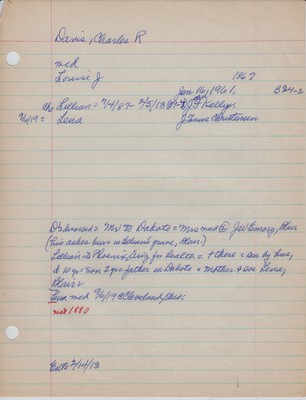 Davis, Charles R
med
Louise J 1867
Jan 16, 1961, B24-2
Lillian = 7/4/87 - 2/5/13 J F Kelley,
9/6/19 = Lena J Linus Christensen
Divorced = Mr to Dakota = Mrs med @ J W Emory, Blair
(His ashes bur in Lillian's grave, Blair)
Lillian to Phoenix, Ariz. for health = + there = sur by hus,
d 10 yr = son 2 yr = father in Dakota = mother + sis Lena,
Blair
Lena med 9/6/19 @ Cleveland, Ohio
not 1880
Ents 2/14/13